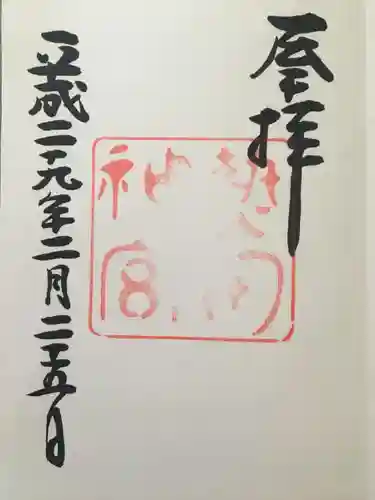 奉拝
神宮
平成二十九年二月二十五日